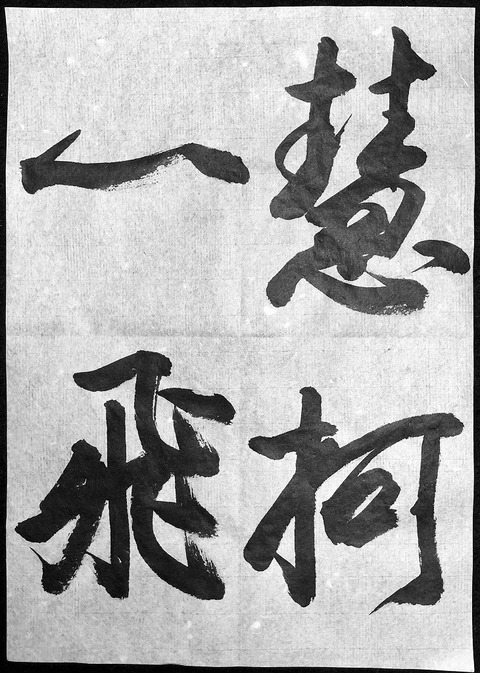 慧柯
一飛